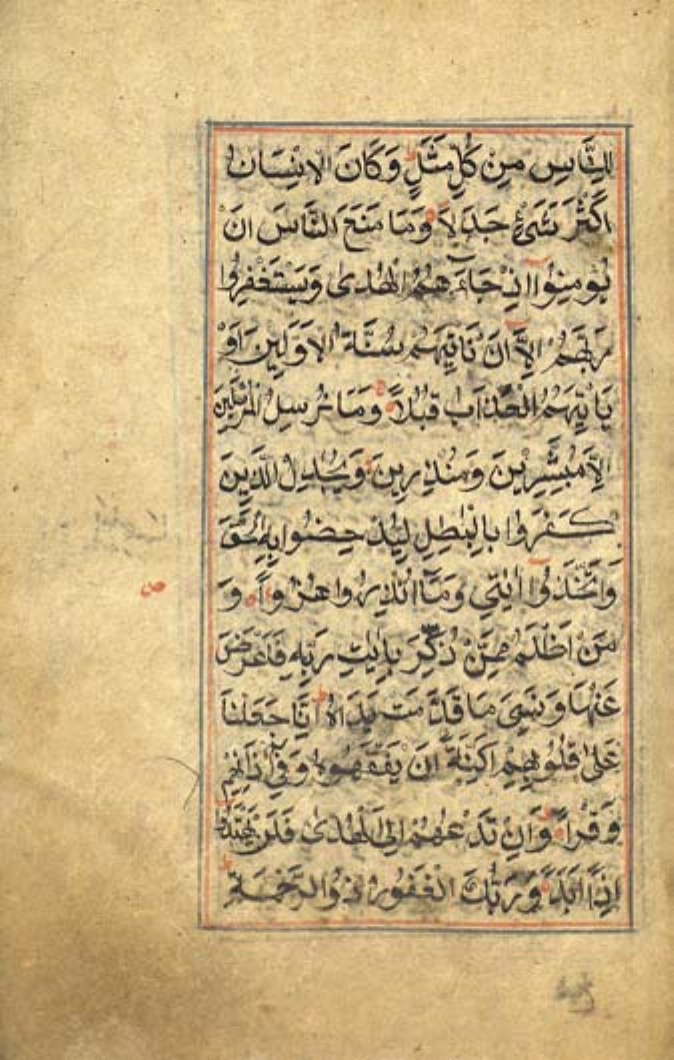 لِلنَّاسِ مِنْ كُلِّ مَثَلٍ وَكَانَ الْاِنْسَانُ
اَكْثَرَ شَيْءٍ جَدَلًا وَمَا مَنَعَ النَّاسَ اَنْ
يُؤْمِنُوا اِذْ جَاءَهُمُ الْهُدٰى وَيَسْتَغْفِرُوا
رَبَّهُمْ اِلَّا اَنْ تَاْتِيَهُمْ سُنَّةُ الْاَوَّلِينَ اَوْ
يَاْتِيَهُمُ الْعَذَابُ قُبُلًا وَمَا نُرْسِلُ الْمُرْسَلِينَ
اِلَّا مُبَشِّرِينَ وَمُنْذِرِينَ وَيُجَادِلُ الَّذِينَ
كَفَرُوا بِالْبٰطِلِ لِيُدْحِضُوا بِهِ الْحَقَّ
وَاتَّخَذُوا اٰيٰتِي وَمَا اُنْذِرُوا هُزُوًا وَ
مَنْ اَظْلَمُ مِمَّنْ ذُكِّرَ بِاٰيٰتِ رَبِّهِ فَاَعْرَضَ
عَنْهَا وَنَسِيَ مَا قَدَّمَتْ يَدَاهُ اِنَّا جَعَلْنَا
عَلٰى قُلُوبِهِمْ اَكِنَّةً اَنْ يَفْقَهُوهُ وَفِي اٰذَانِهِمْ
وَقْرًا وَاِنْ تَدْعُهُمْ اِلَى الْهُدٰى فَلَنْ يَهْتَدُوا
اِذًا اَبَدًا وَرَبُّكَ الْغَفُورُ ذُو الرَّحْمَةِ